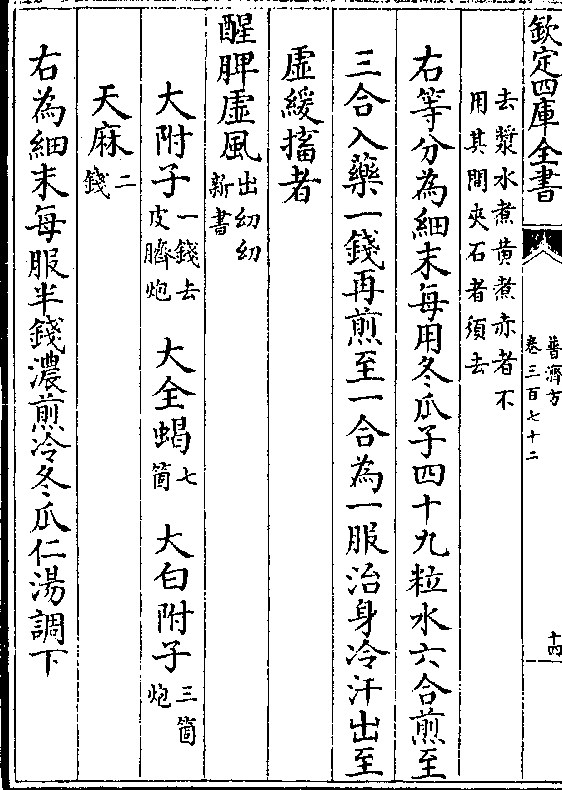 欽定四庫全書
普濟方
卷三百七十二
十四
去漿水煮黄煮赤者不
用其間夾石者須去
右等分為細末每用冬瓜子四十九粒水六合煎至
三合入藥一錢再煎至一合為一服治身冷汗出至
虚緩搐者
醒脾虚風出幼幼新書
大附子一錢去皮臍炮 大全蝎七箇 大白附子三箇炮
天麻二錢
右為細末每服半錢濃煎冷冬瓜仁湯調下